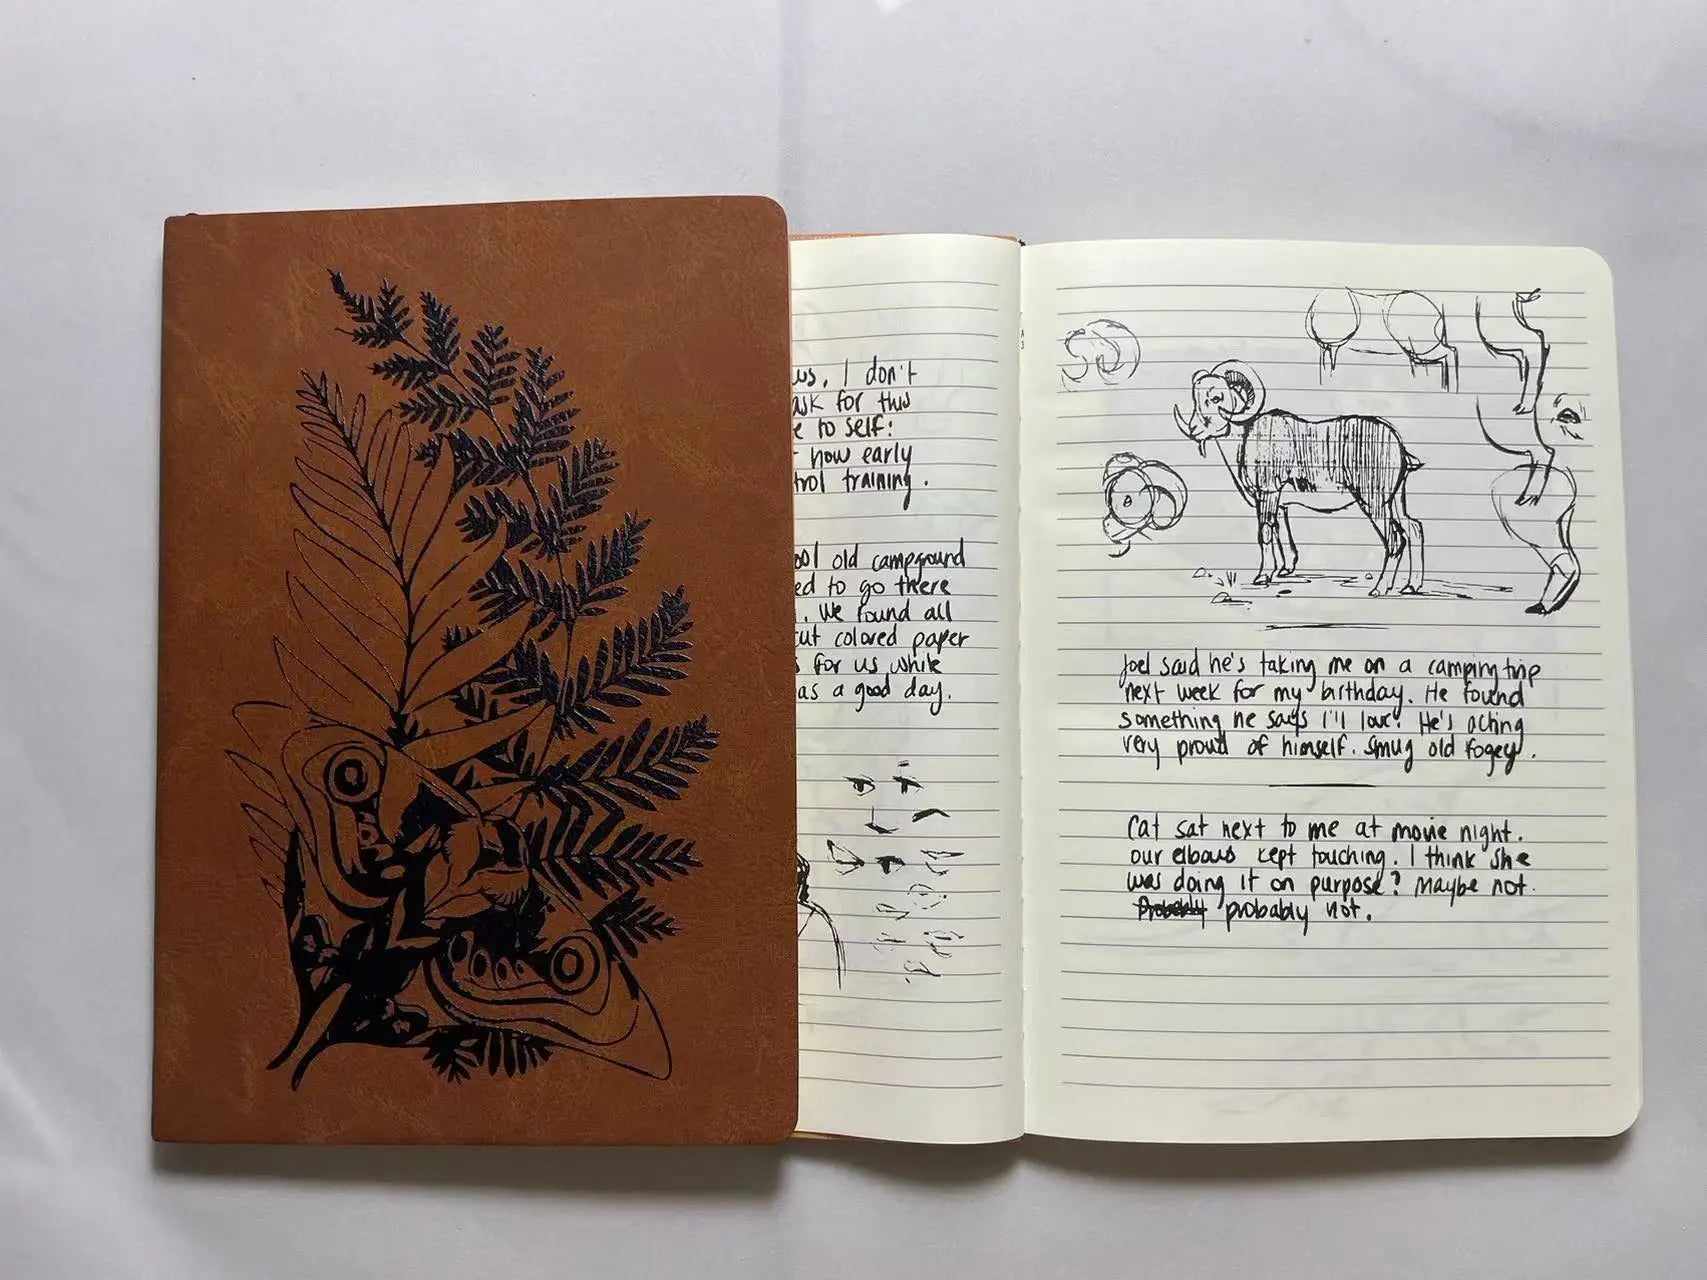 ws. I don't
ask for this
e to self:
now early
trol training.
ool old campground
ed to go there
. We found all
cut colored paper
s for us while
as a good day.
Joel said he's taking me on a camping trip
next week for my birthday. He found
something he says I'll love. He's acting
very proud of himself. Smug old fogey.
Cat sat next to me at movie night.
our elbows kept touching. I think she
was doing it on purpose? Maybe not.
probably not.